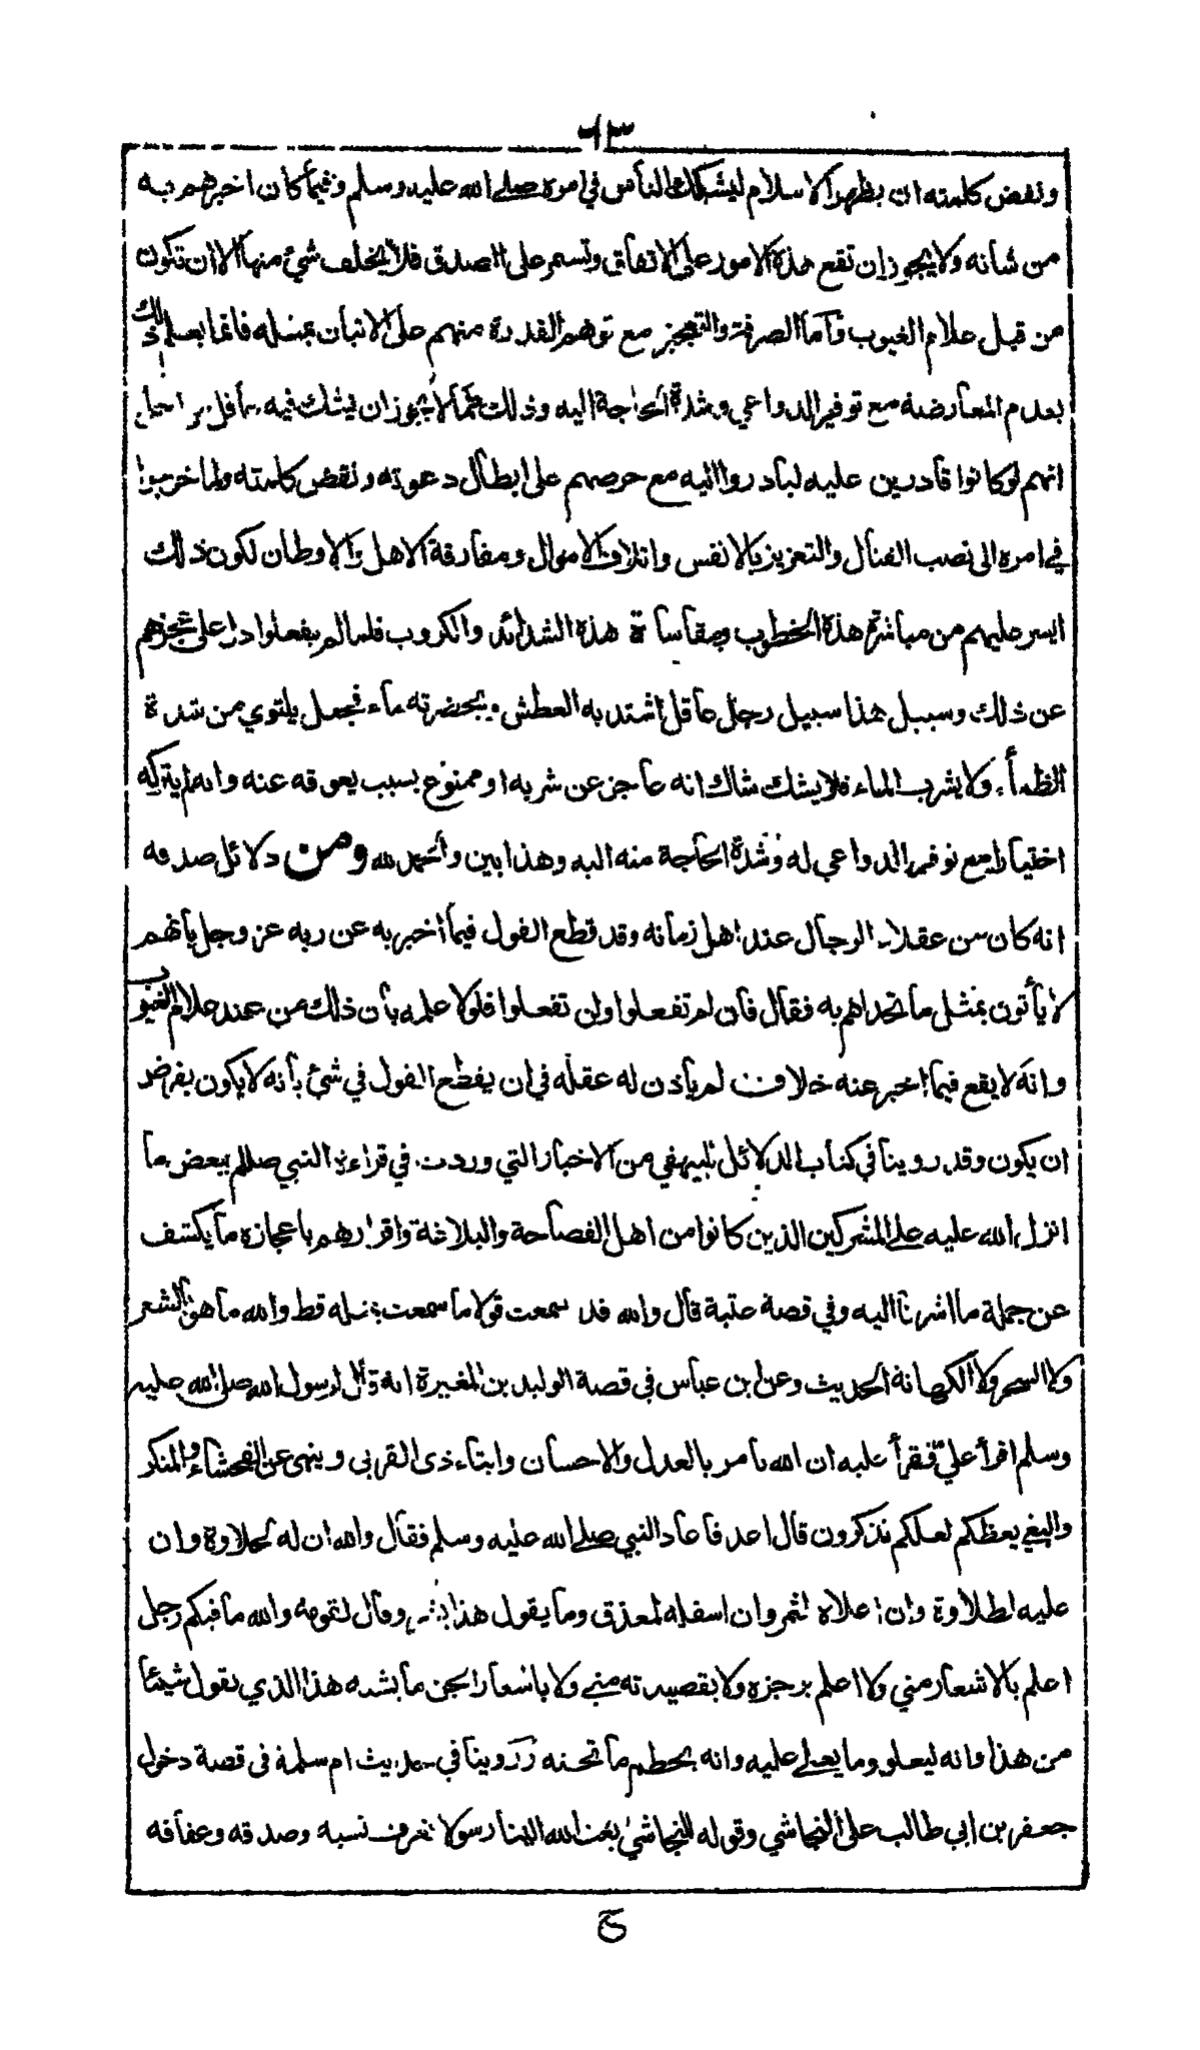 ٦٣
ونقض كلمته ان يظهر الاسلام ليشكك الناس في امره صلى الله عليه وسلم وفيما كان اخبرهم به
من شانه ولا يجوز ان تقع هذه الامور على الاتفاق وتسمر على الصدق فلا يخلف شيء منها الا ان تكون
من قبل علام الغيوب وأما الصرفة والتعجيز مع توهم القدرة منهم على الاتيان بمثله فانما يعلم ذلك
بعدم المعارضة مع توفير الدواعي وشدة الحاجة اليه وذلك مما لا يجوز ان يشك فيه
انهم لو كانوا قادرين عليه لبادروا اليه مع حرصهم على ابطال دعوته ونقض كلمته ولما خرجوا
في امره الى نصب القتال والتعزيز بالانفس واتلاف الاموال ومفارقة الاهل والاوطان لكون ذلك
ايسر عليهم من مباشرتهم هذه الخطوب ومقاساة هذه الشدائد والكروب فلما لم يفعلوا دل على عجزهم
عن ذلك وسبيل هذا سبيل رجل عاقل اشتد به العطش وبحضرته ماء فجعل يلتوي من شدة
الظمأ ولا يشرب الماء فلا يشك شاك انه عاجز عن شربه او ممنوع بسبب يعوقه عنه وانه لم يتركه
اختيارا مع توفر الدواعي له وشدة الحاجة منه اليه وهذا بين والحمد لله ومن دلائل صدقه
انه كان من عقلاء الرجال عند اهل زمانه وقد قطع القول فيما اخبر به عن ربه عز وجل بانهم
لا يأتون بمثل ما تحداهم به فقال فان لم تفعلوا ولن تفعلوا فلولا علمه بأن ذلك من عند علام الغيوب
وانه لا يقع فيما اخبر عنه خلاف لم يأذن له عقله في ان يقطع القول في شيء بأنه لا يكون بفرض
ان يكون وقد روينا في كتاب الدلائل للبيهقي من الاخبار التي وردت في قراءة النبي صللم بعض ما
انزل الله عليه على المشركين الذين كانوا من اهل الفصاحة والبلاغة واقرارهم باعجازه ما يكشف
عن جملة ما اشرنا اليه وفي قصة عتبة قال والله قد سمعت قولا ما سمعت بمثله قط والله ما هو بالشعر
ولا السحر ولا الكهانة الحديث وعن ابن عباس في قصة الوليد بن المغيرة انه قال لرسول الله صلى الله عليه
وسلم اقرأ علي فقرأ عليه ان الله يامر بالعدل والاحسان وايتاء ذى القربى وينهى عن الفحشاء والمنكر
والبغي يعظكم لعلكم تذكرون قال اعد فاعاد النبي صلى الله عليه وسلم فقال والله ان له لحلاوة وان
عليه لطلاوة وان اعلاه لثمر وان اسفله لمعذق وما يقول هذا بشر وقال لقومه والله ما فيكم رجل
اعلم بالاشعار مني ولا اعلم برجزه ولا بقصيدته مني ولا باشعار الجن ما يشبه هذا الذي يقول شيئا
من هذا وانه ليعلو وما يعلى عليه وانه يحطم ما تحته وروينا في حديث ام سلمة فى قصة دخول
جعفر بن ابي طالب على النجاشي وقوله للنجاشي بعث الله الينا رسولا نعرف نسبه وصدقه وعفافه